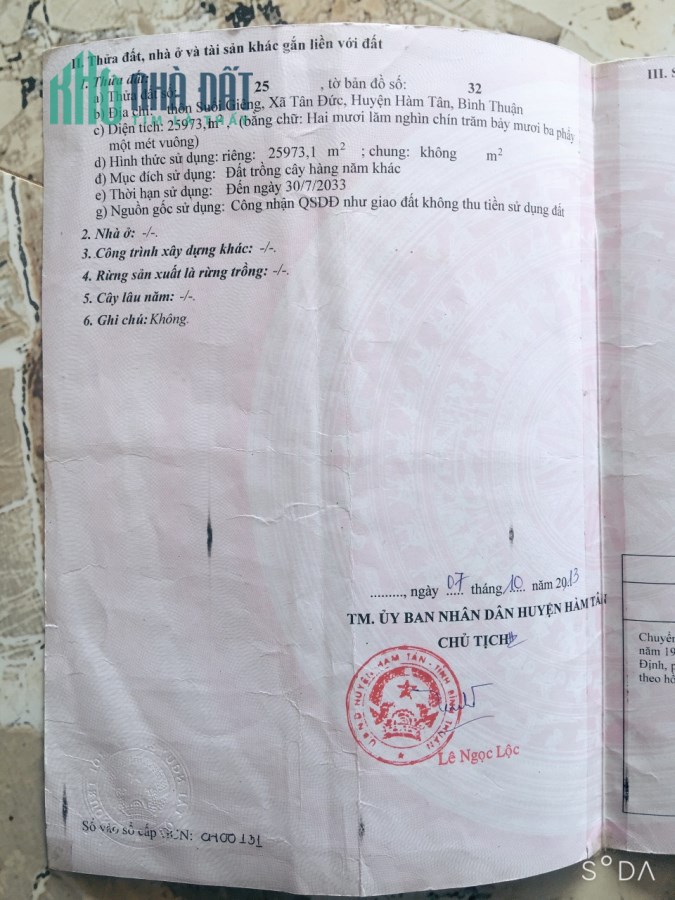 II. Thửa đất, nhà ở và tài sản khác gắn liền với đất
KHO NHÀ ĐẤT
TÌM LÀ THẤY
1. Thửa đất:
a) Thửa đất số: 25 , tờ bản đồ số: 32
b) Địa chỉ: thôn Suối Giêng, Xã Tân Đức, Huyện Hàm Tân, Bình Thuận
c) Diện tích: 25973,1 m² , (bằng chữ: Hai mươi lăm nghìn chín trăm bảy mươi ba phẩy
một mét vuông)
d) Hình thức sử dụng: riêng: 25973,1 m² ; chung: không m²
đ) Mục đích sử dụng: Đất trồng cây hàng năm khác
e) Thời hạn sử dụng: Đến ngày 30/7/2033
g) Nguồn gốc sử dụng: Công nhận QSDĐ như giao đất không thu tiền sử dụng đất
2. Nhà ở: -/-.
3. Công trình xây dựng khác: -/-.
4. Rừng sản xuất là rừng trồng: -/-.
5. Cây lâu năm: -/-.
6. Ghi chú: Không.
........., ngày 07 tháng 10 năm 2013
TM. ỦY BAN NHÂN DÂN HUYỆN HÀM TÂN
CHỦ TỊCH
UBND HUYỆN HÀM TÂN - TỈNH BÌNH THUẬN
Lê Ngọc Lộc
Số vào sổ cấp GCN: CH00131
III. S
Chuyển
năm 19
Định, p
theo hồ
SODA